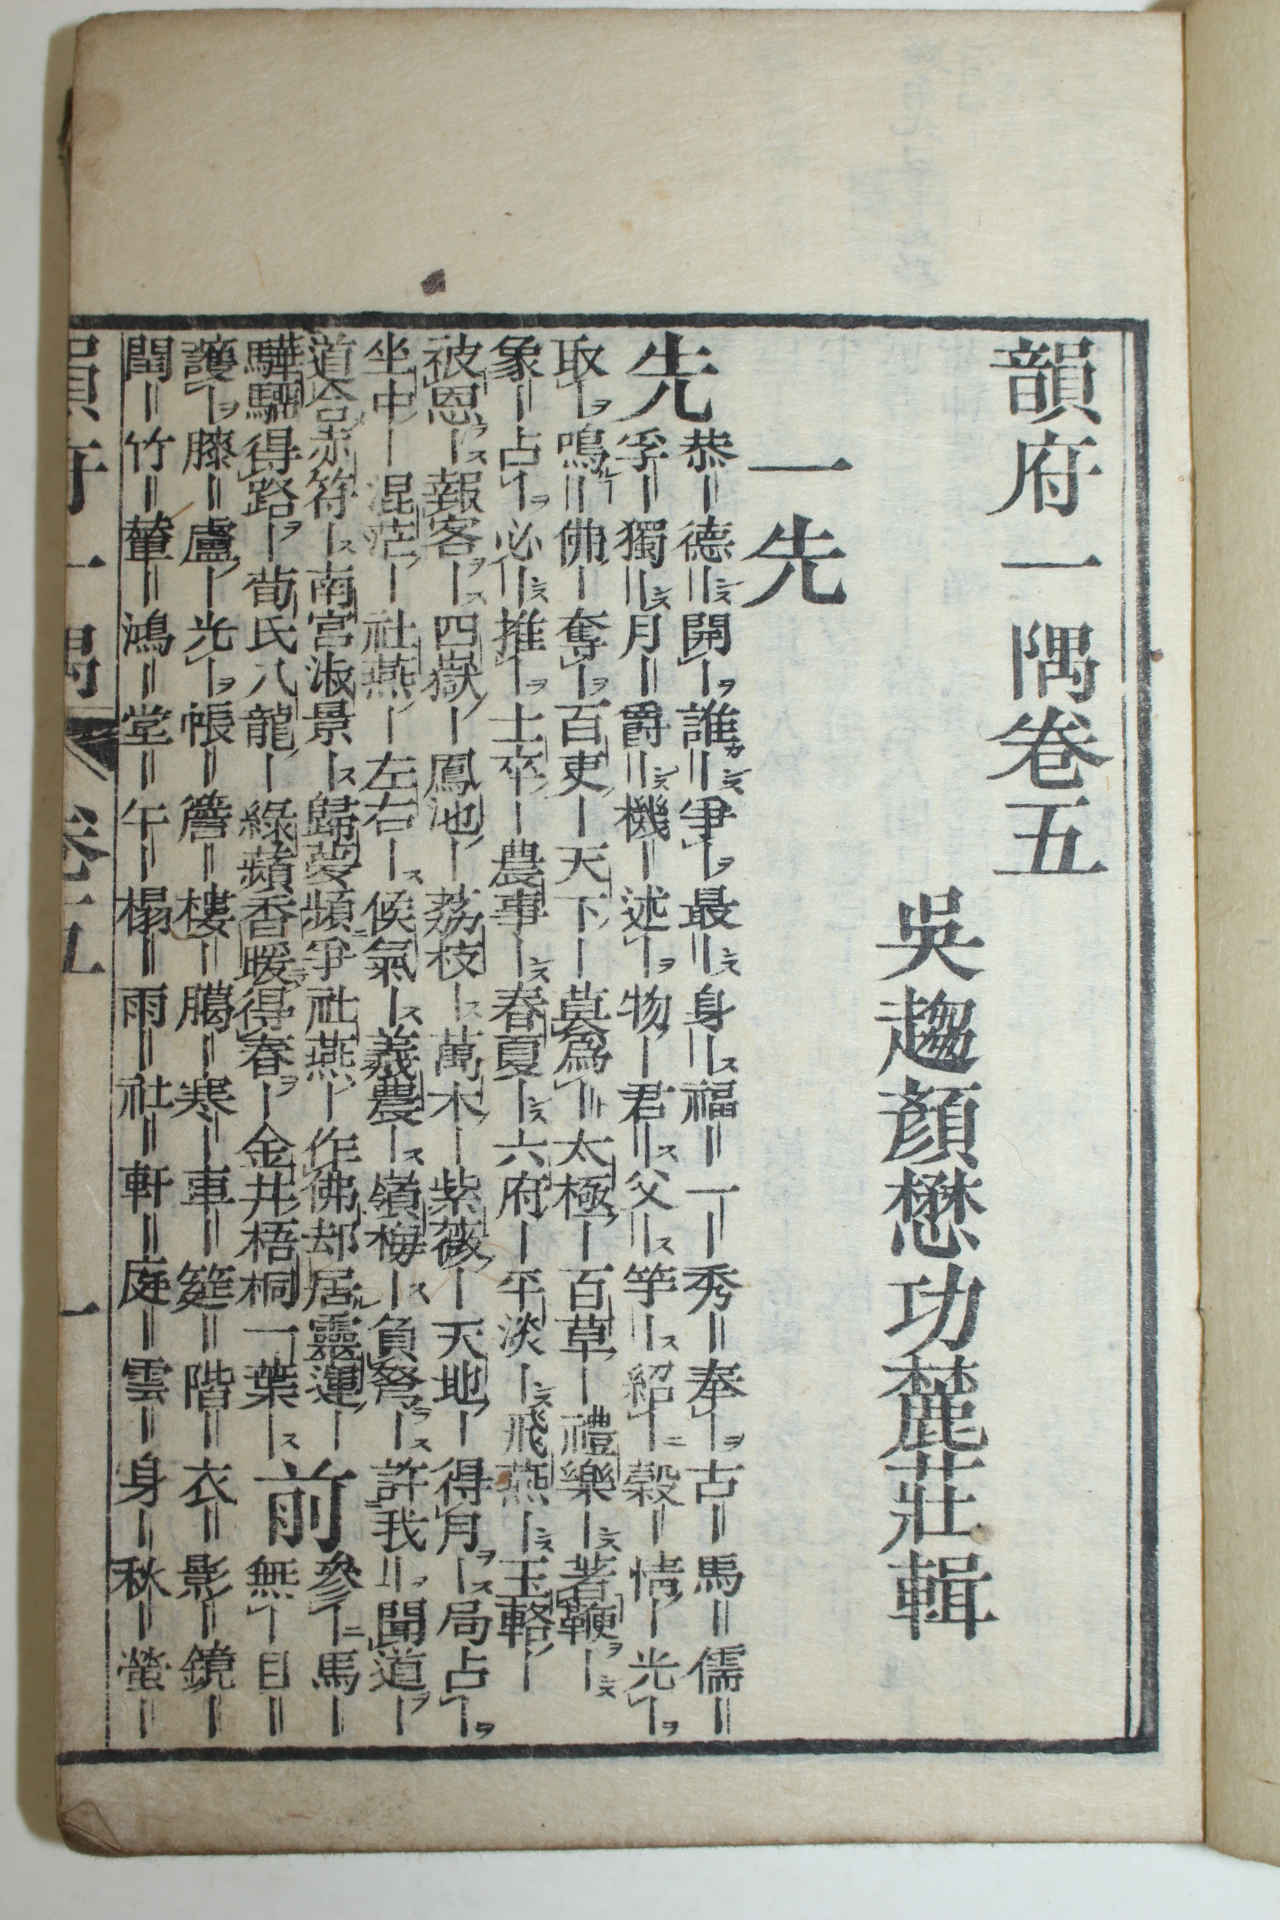 韻府一隅卷五
吳趨顏懋功麓莊輯
一先
先
恭｜德‖開｜ヲ誰‖爭｜ヲ最‖身‖福‖一｜秀‖奉｜ヲ古‖馬‖儒‖
孚‖獨‖月‖爵‖機‖述｜ヲ物｜君‖父‖竿｜紹｜ニ穀｜情｜光｜ヲ
取｜ヲ鳴‖佛｜奪｜ヲ百吏｜天下｜莫爲｜太極｜百草｜禮樂｜著鞭｜
象｜占｜ヲ必‖推｜ヲ士卒｜農事｜春夏｜六府｜平淡｜飛燕｜玉輅｜
被恩｜報客｜四嶽｜鳳池｜荔枝｜萬木｜紫薇｜天地｜得月｜局占｜ヲ
坐中｜混茫｜社燕｜左右｜候氣｜羲農｜嶺梅｜負弩｜許我‖聞道｜
道合赤符｜南宮淑景｜歸夢頻爭社燕｜作佛却居靈運｜前參｜ニ馬｜
驊騮得路｜荀氏八龍｜綠蘋香暖得春｜金井梧桐一葉｜無｜目‖
護｜ヲ膝｜盧｜光｜ヲ帳｜簷‖樓｜臈｜寒｜車｜筵‖階｜衣‖影｜鏡｜
閶｜竹‖輦‖鴻‖堂‖午｜榻‖雨‖社‖軒‖庭‖雲‖身｜秋｜螢｜
韻府一隅　卷五　一